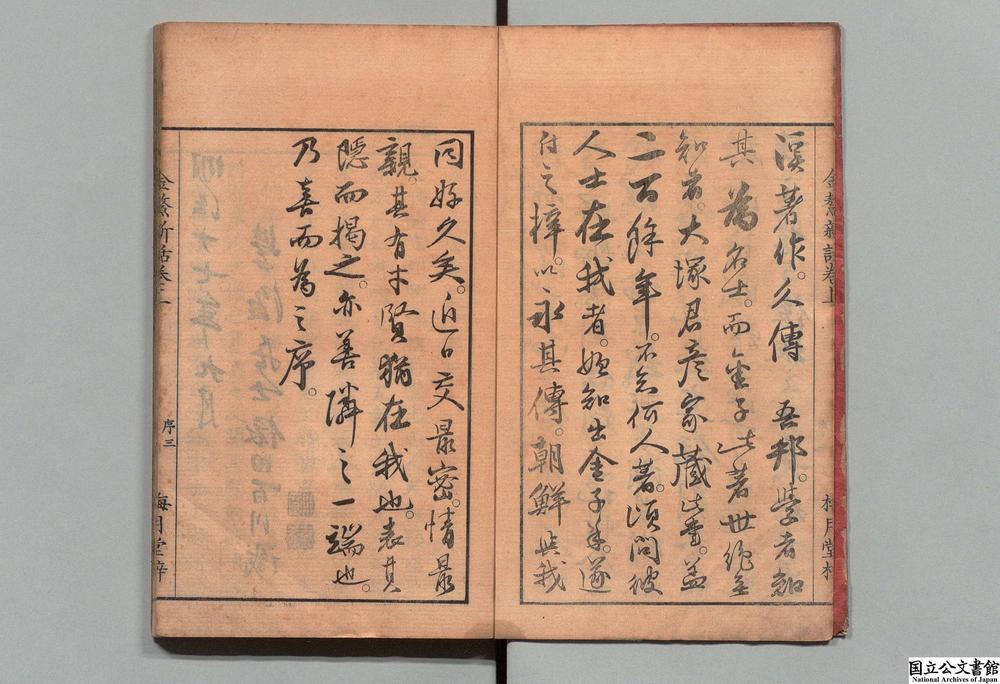 溪著作。久傳　吾邦。學者知
其為名士。而金子此著世絶無
知者。大塚君彦家藏此書。蓋
二百餘年。不知何人著。頃問彼
人士在我者。始知出金子手。遂
付之梓。以永其傳。朝鮮與我
同好久矣。近日交最密。情最
親。其有才賢猶在我也。表其
隠而揭之。亦善隣之一端也。
乃喜而為之序。
金鰲新話卷上
梅月堂梓
金鰲新話卷上
序三
梅月堂梓
国立公文書館
National Archives of Japan